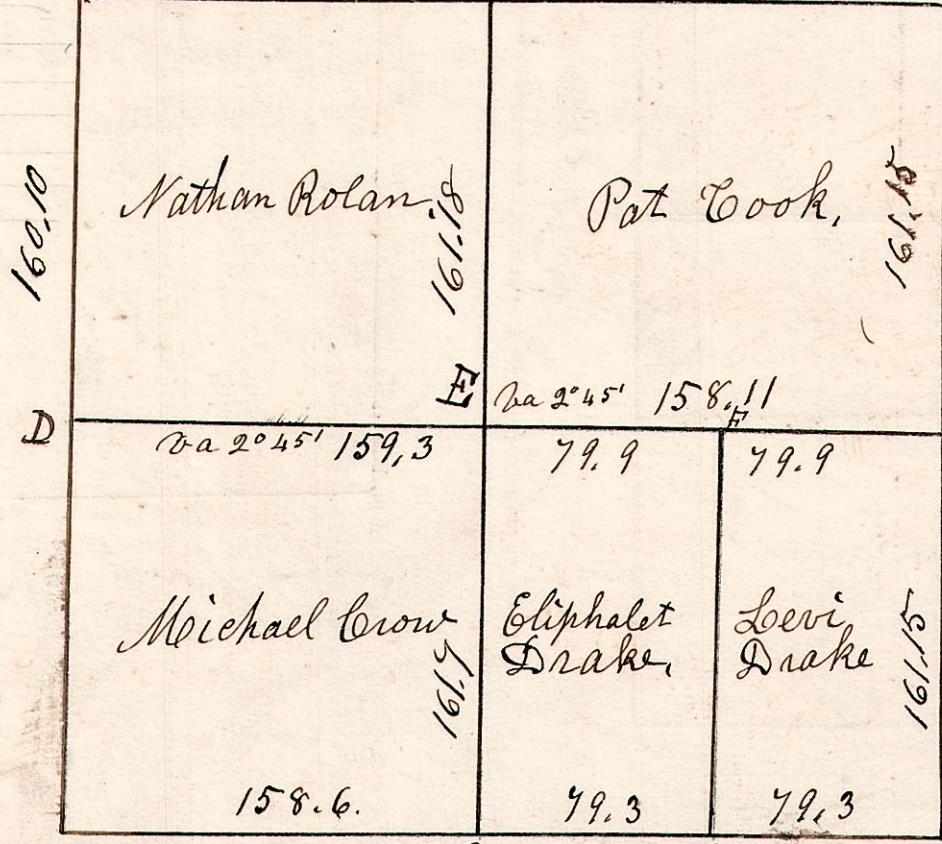 160,10
Nathan Rolan.
161.18
Pat Cook,
161,15
D
E
va 2° 45' 158.11
F
va 2° 45' 159,3
79.9
79.9
Michael Crow
161.7
Eliphalet
Drake,
Levi
Drake
161,15
158.6.
79.3
79,3